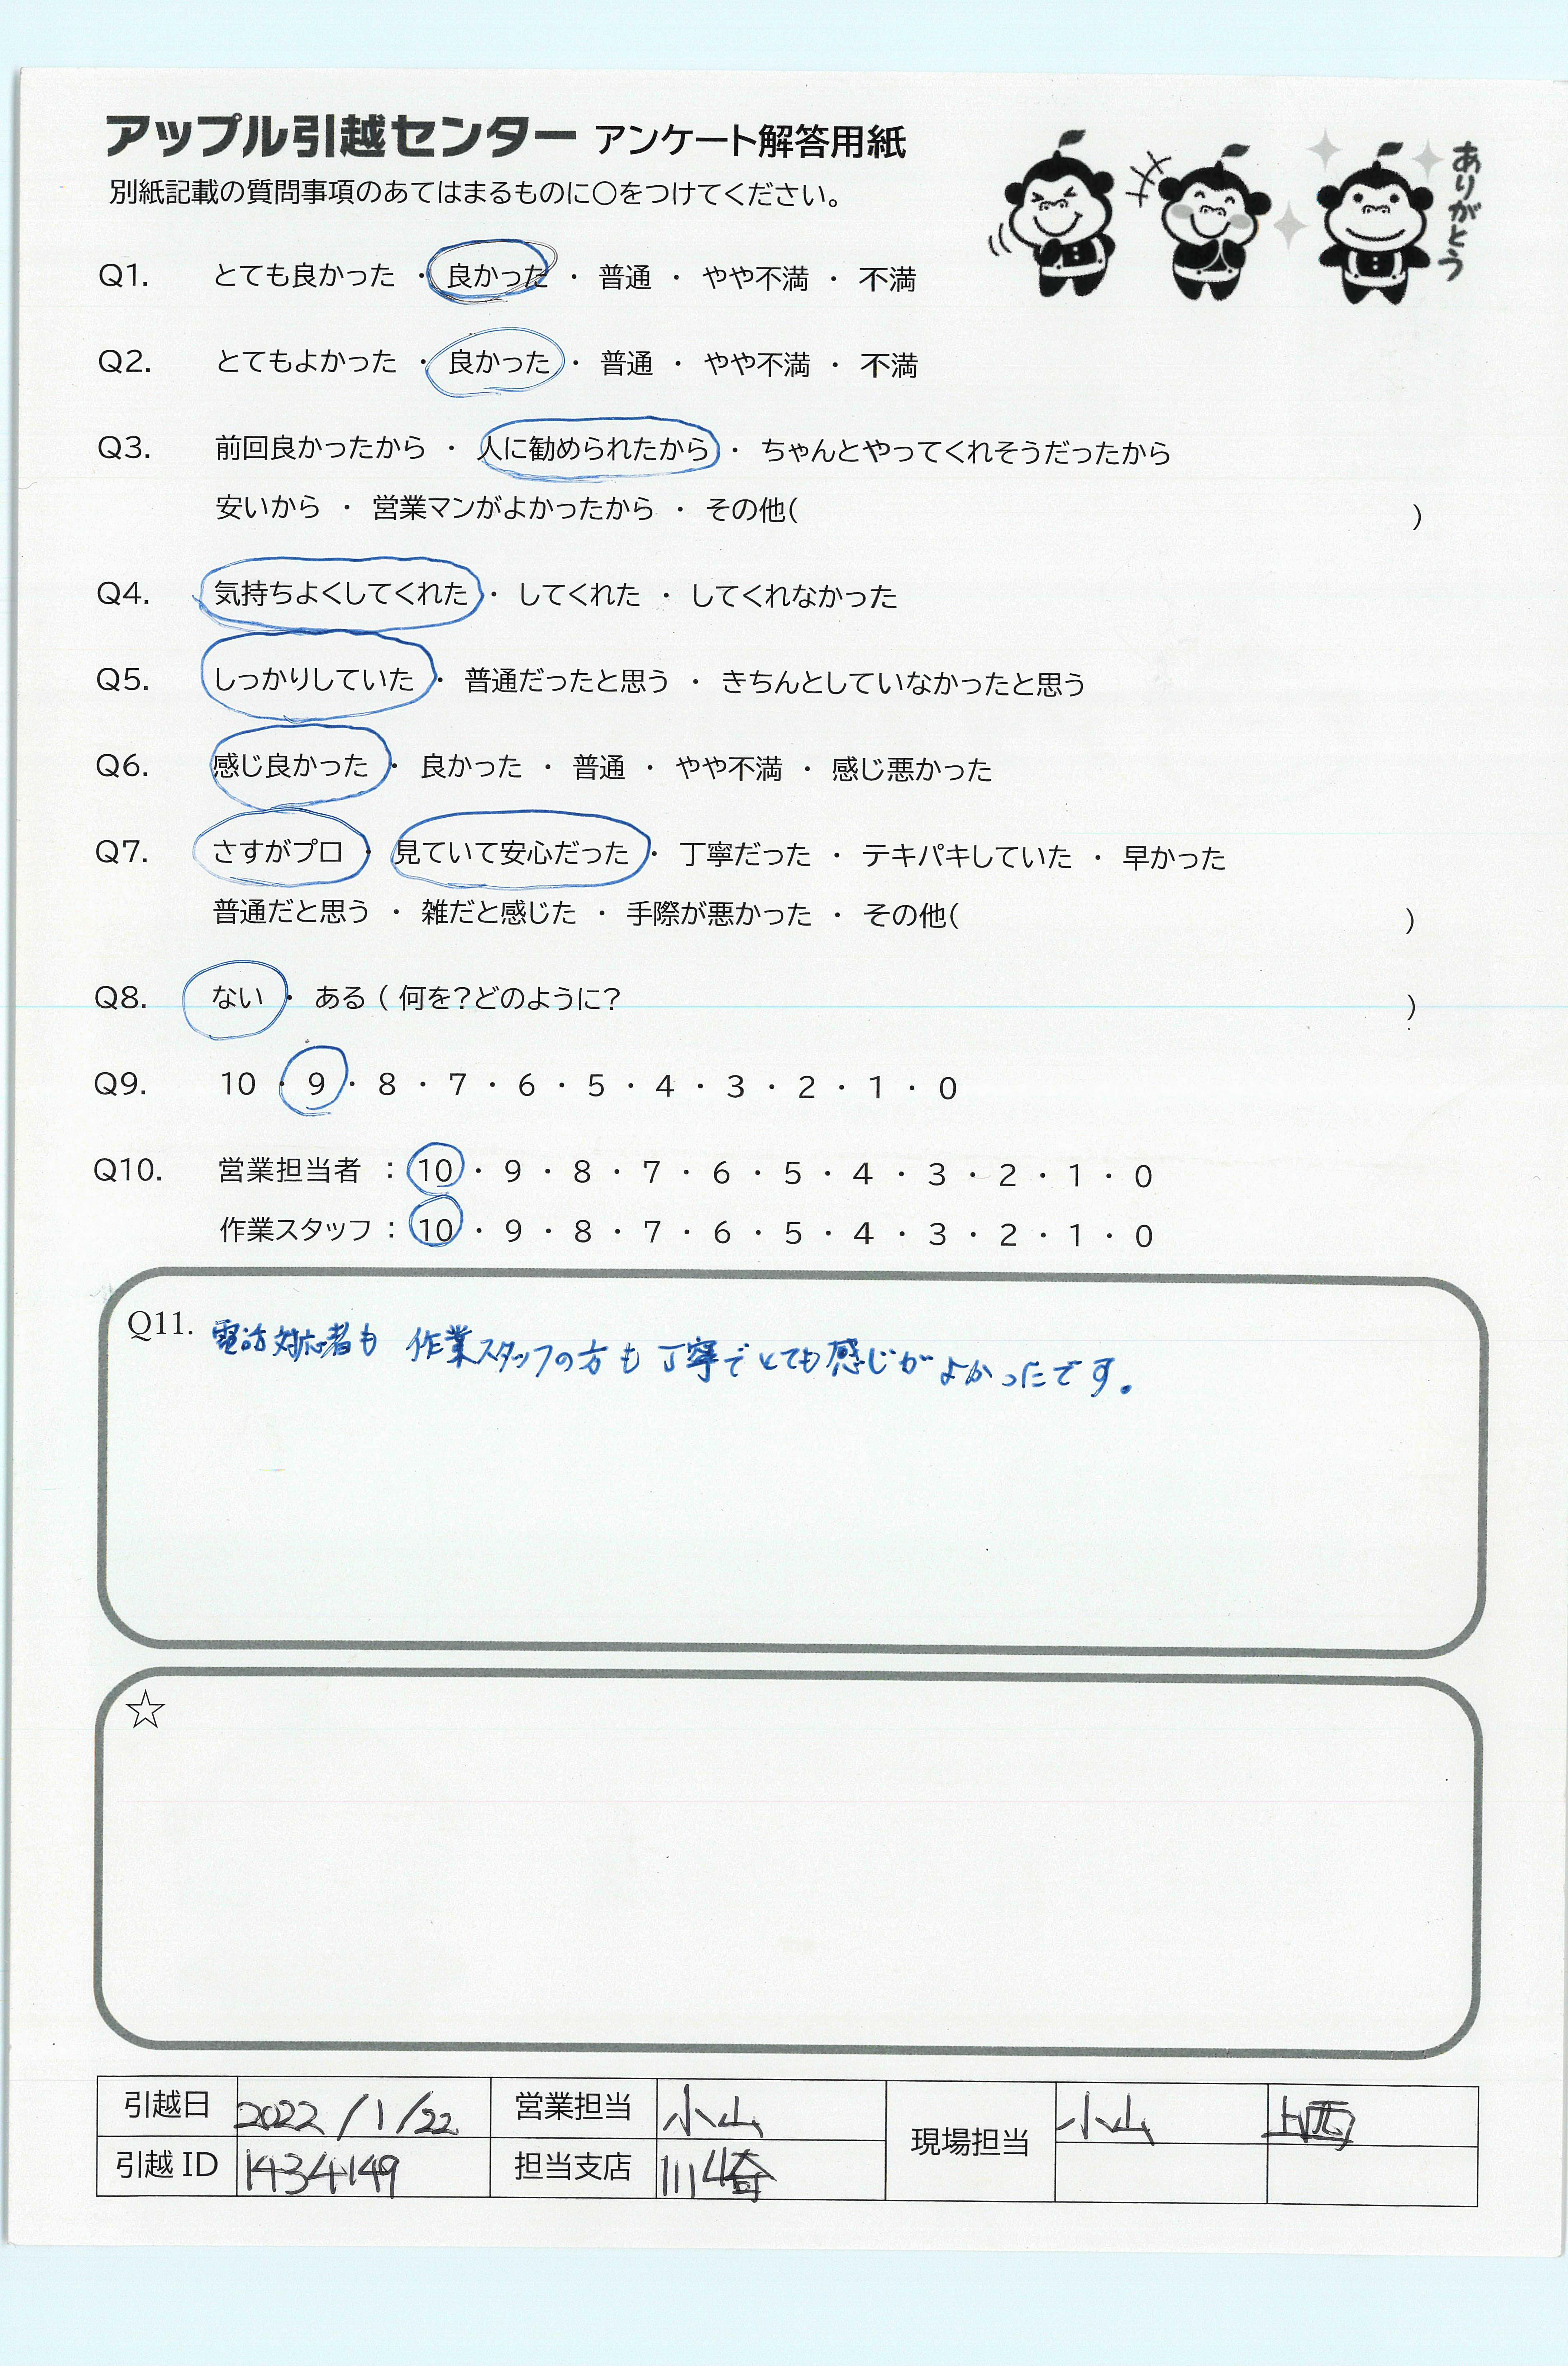 アップル引越センター アンケート解答用紙
ありがとう
別紙記載の質問事項のあてはまるものに〇をつけてください。
Q1. とても良かった ・ 良かった ・ 普通 ・ やや不満 ・ 不満
Q2. とてもよかった ・ 良かった ・ 普通 ・ やや不満 ・ 不満
Q3. 前回良かったから ・ 人に勧められたから ・ ちゃんとやってくれそうだったから
安いから ・ 営業マンがよかったから ・ その他( )
Q4. 気持ちよくしてくれた ・ してくれた ・ してくれなかった
Q5. しっかりしていた ・ 普通だったと思う ・ きちんとしていなかったと思う
Q6. 感じ良かった ・ 良かった ・ 普通 ・ やや不満 ・ 感じ悪かった
Q7. さすがプロ ・ 見ていて安心だった ・ 丁寧だった ・ テキパキしていた ・ 早かった
普通だと思う ・ 雑だと感じた ・ 手際が悪かった ・ その他( )
Q8. ない ・ ある ( 何を?どのように? )
Q9. 10 ・ 9 ・ 8 ・ 7 ・ 6 ・ 5 ・ 4 ・ 3 ・ 2 ・ 1 ・ 0
Q10. 営業担当者 : 10 ・ 9 ・ 8 ・ 7 ・ 6 ・ 5 ・ 4 ・ 3 ・ 2 ・ 1 ・ 0
作業スタッフ : 10 ・ 9 ・ 8 ・ 7 ・ 6 ・ 5 ・ 4 ・ 3 ・ 2 ・ 1 ・ 0
Q11. 電話対応者も 作業スタッフの方も丁寧でとても感じがよかったです。
☆
引越日 2022/1/22 営業担当 小山 現場担当 小山 上西
引越 ID 1434149 担当支店 川崎